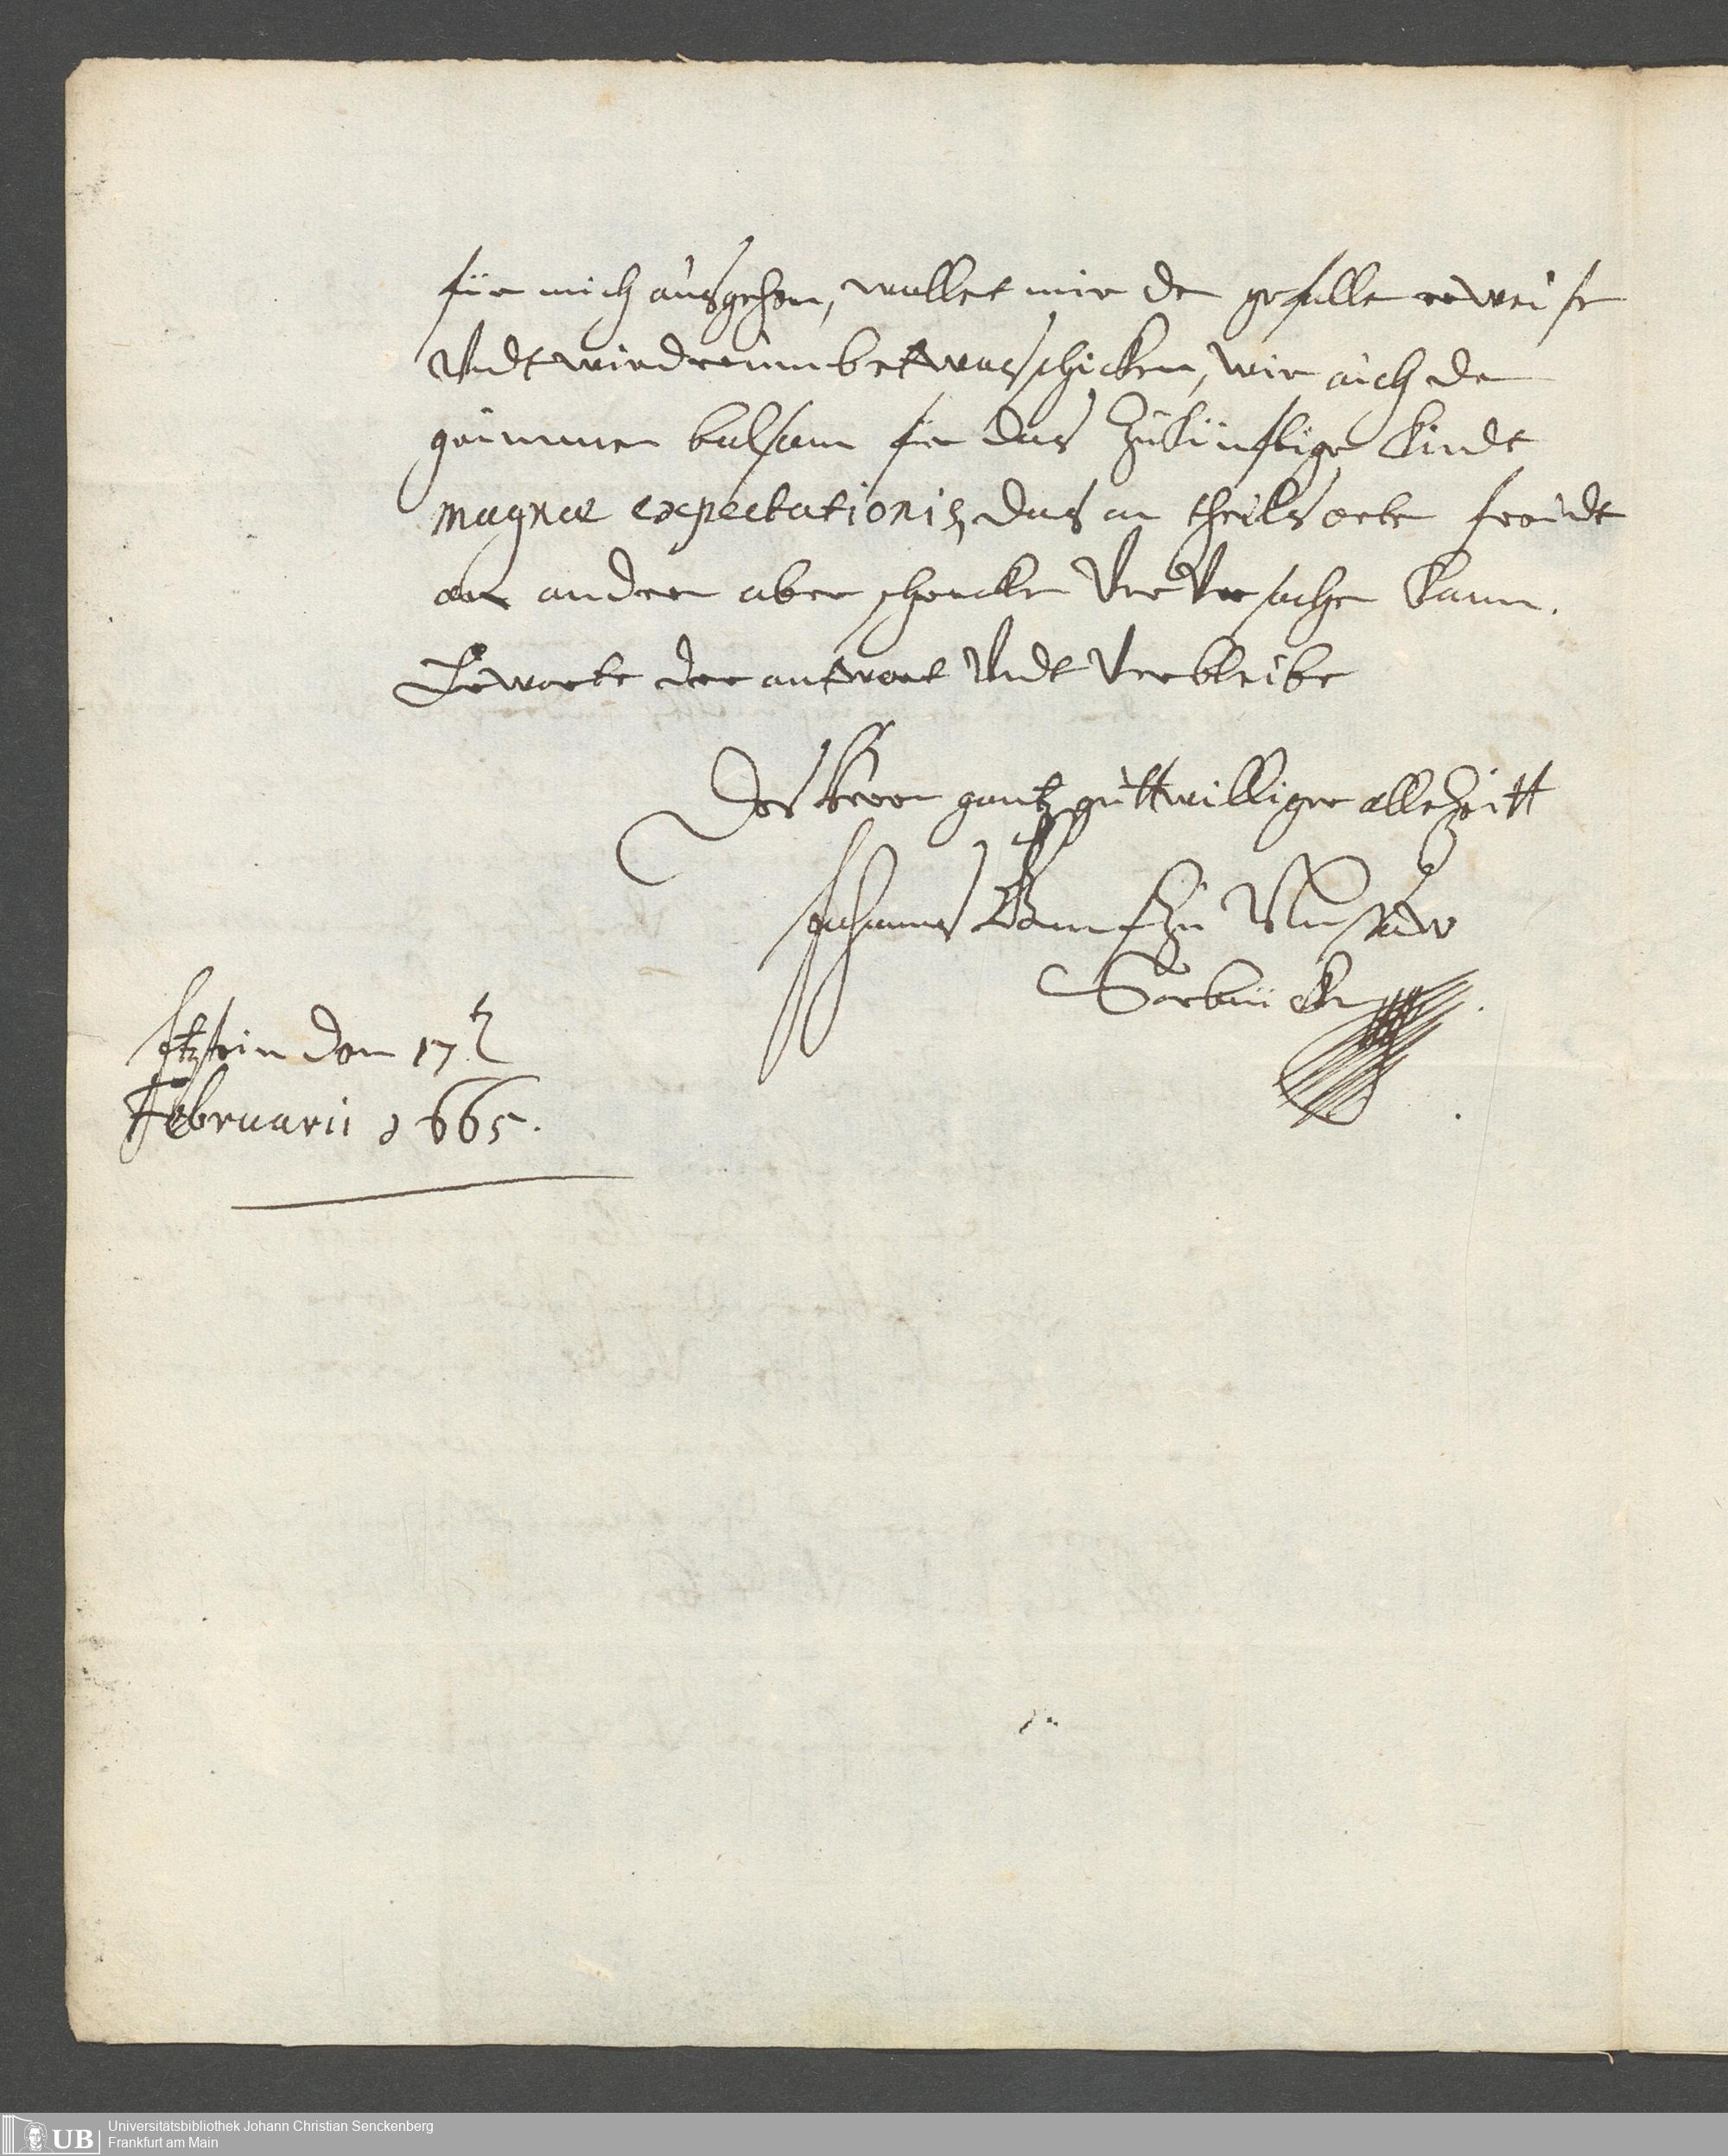 für mich ausgehen, wollet mir den gefallen erweisen
Vndt wiedrumb etwas schicken, wie auch den
gaümmen balsam für das zukünftige Kindt
magnæ expectationis, das an theils orten freüdt
an andren aber schrecken Verursachen kann.
Erwarte der antwort Vndt Verbleibe
Des herrn gantz guttwilliger allezeitt
Johannes Graue zu Nassaw
Sarbrücken
Itzstein den 17t
Februarii 1665.
UB Universitätsbibliothek Johann Christian Senckenberg
Frankfurt am Main